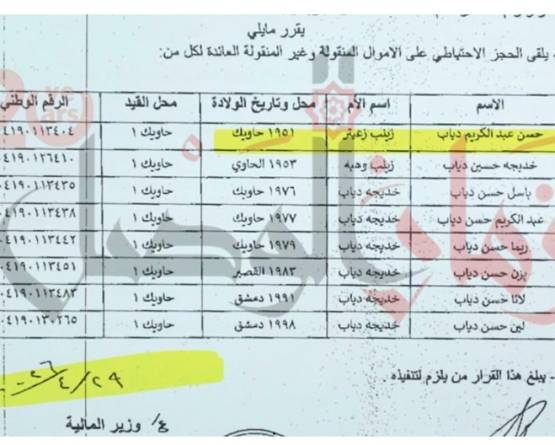 يقرر مايلي
يلقى الحجز الاحتياطي على الاموال المنقولة وغير المنقولة العائدة لكل من:
الاسم اسم الأم محل وتاريخ الولادة محل القيد الرقم الوطني
حسن عبد الكريم دياب زينب زعيتر ١٩٥١ حاويك حاويك ١ ٠٤١٩٠١١٣٤٠٤
خديجه حسين دياب زينب وهبه ١٩٥٣ الحاوي حاويك ١ ٠٤١٩٠١٢٦٤١٠
باسل حسن دياب خديجه دياب ١٩٧٦ حاويك حاويك ١ ٠٤١٩٠١١٣٤٣٥
عبد الكريم حسن دياب خديجه دياب ١٩٧٧ حاويك حاويك ١ ٠٤١٩٠١١٣٤٣٨
ريما حسن دياب خديجه دياب ١٩٧٩ حاويك حاويك ١ ٠٤١٩٠١١٣٤٤٢
يزن حسن دياب خديجه دياب ١٩٨٣ القصير حاويك ١ ٠٤١٩٠١١٣٤٥١
لانا حسن دياب خديجه دياب ١٩٩١ دمشق حاويك ١ ٠٤١٩٠١١٣٤٨٣
لين حسن دياب خديجه دياب ١٩٩٨ دمشق حاويك ١ ٠٤١٩٠١٣٠٢٦٥
- يبلغ هذا القرار من يلزم لتنفيذه .
٢٩/٤/٢٠٢٦
ع/ وزير المالية